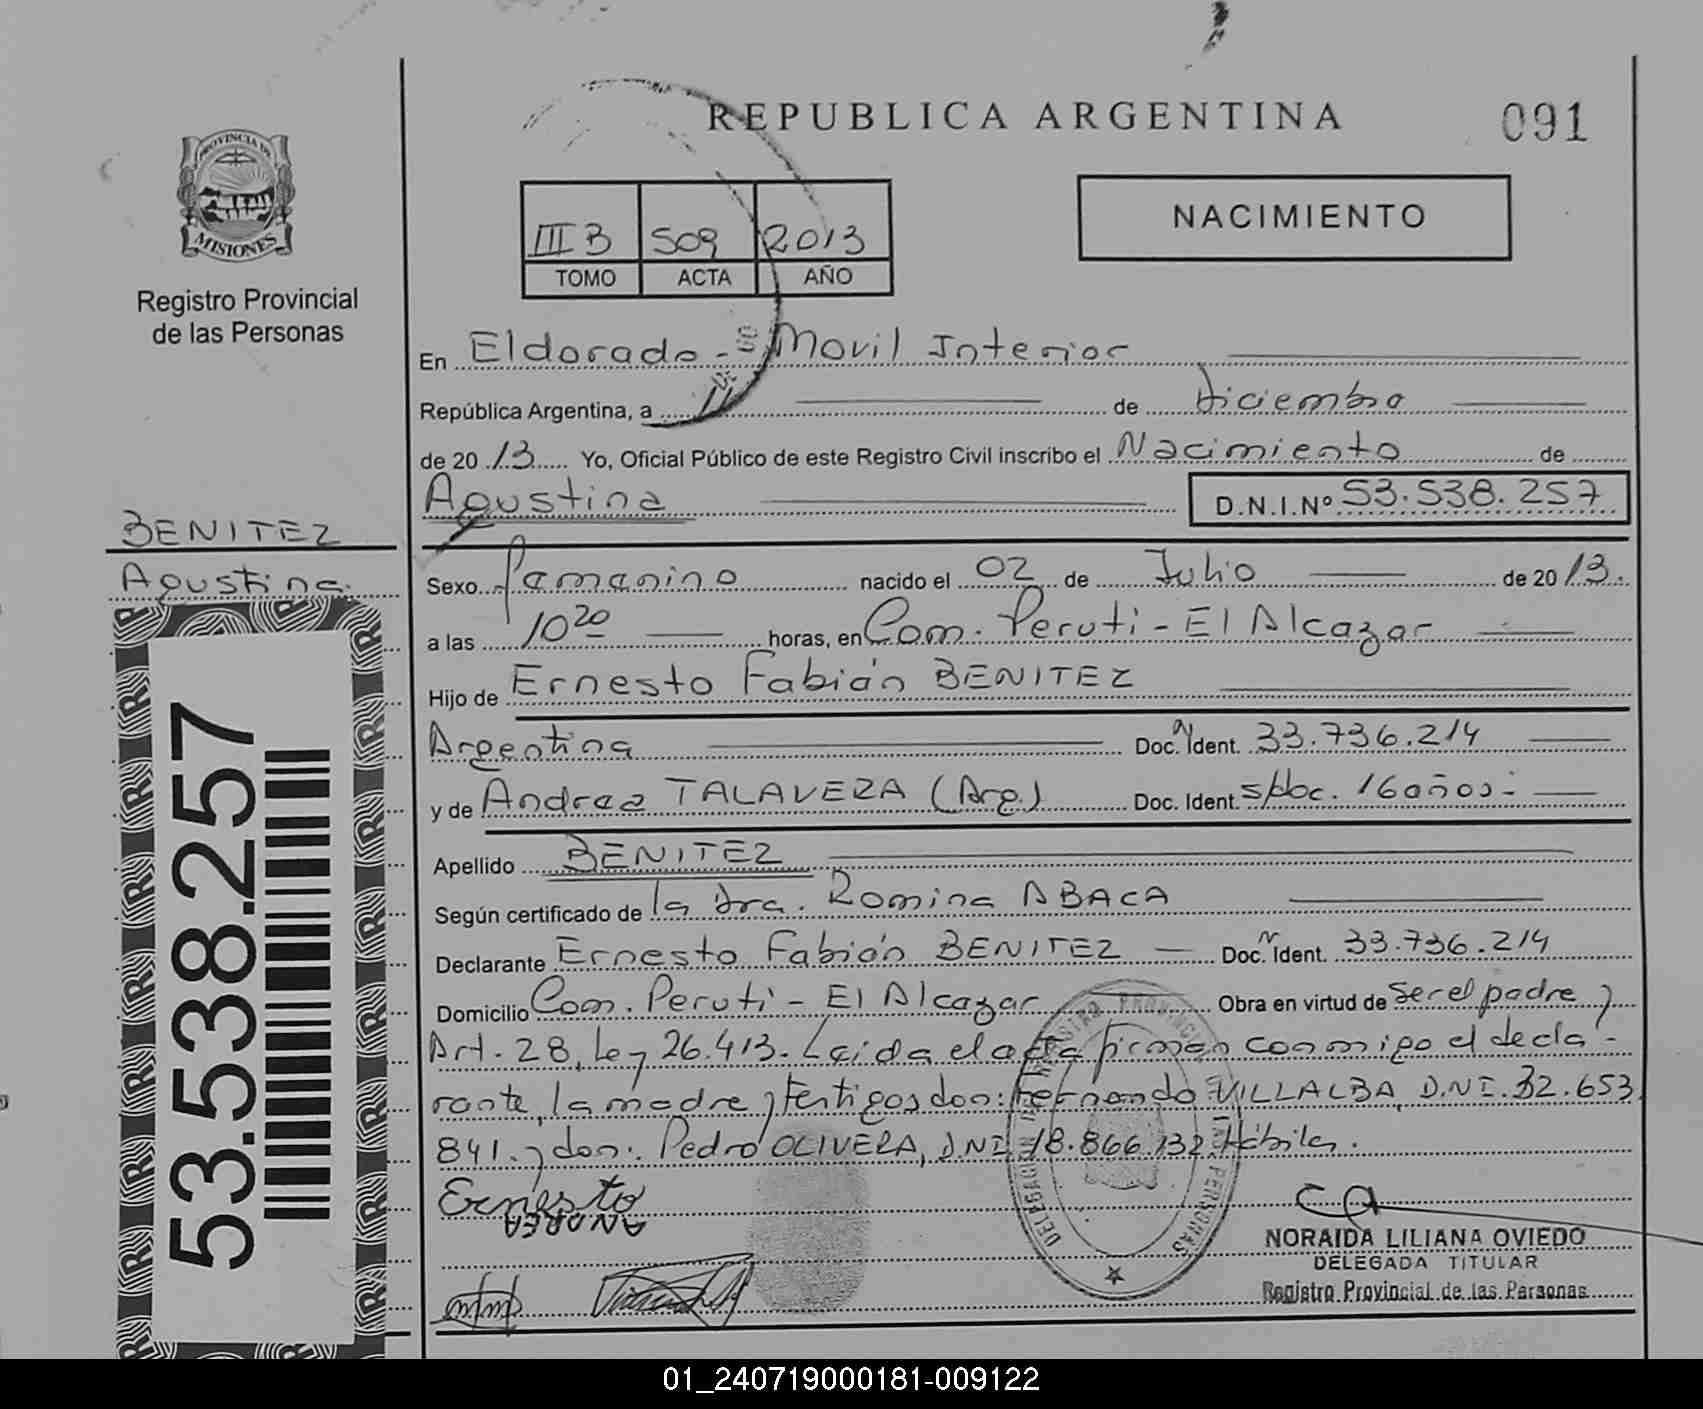 REPUBLICA ARGENTINA
091
PROVINCIA DE
MISIONES
Registro Provincial
de las Personas
III B 509 2013
TOMO ACTA AÑO
NACIMIENTO
En Eldorado - Movil Interior
República Argentina, a 11 de Diciembre
de 2013 Yo, Oficial Público de este Registro Civil inscribo el Nacimiento de
Agustina D.N.I.Nº 53.538.257
BENITEZ
Agustina
53.538.257
Sexo femenino nacido el 02 de Julio de 2013.
a las 10 20 horas, en Com. Peruti - El Alcazar
Hijo de Ernesto Fabián BENITEZ
Argentina Doc. Ident. 33.736.214
y de Andrea TALAVERA (Arg.) Doc. Ident. s/doc. 16 años.-
Apellido BENITEZ
Según certificado de la Dra. Romina ABACA
Declarante Ernesto Fabián BENITEZ Doc. Ident. 33.736.214
Domicilio Com. Peruti - El Alcazar Obra en virtud de ser el padre y
Art. 28, Ley 26.413. Leida el acta firman conmigo el decla-
rante, la madre y testigos don: Fernando VILLALBA, D.N.I. 32.653
841. y don: Pedro OLIVERA, D.N.I. 18.866.132. Hábiles.
Ernesto
ANDREA
NORAIDA LILIANA OVIEDO
DELEGADA TITULAR
Registro Provincial de las Personas
01_240719000181-009122